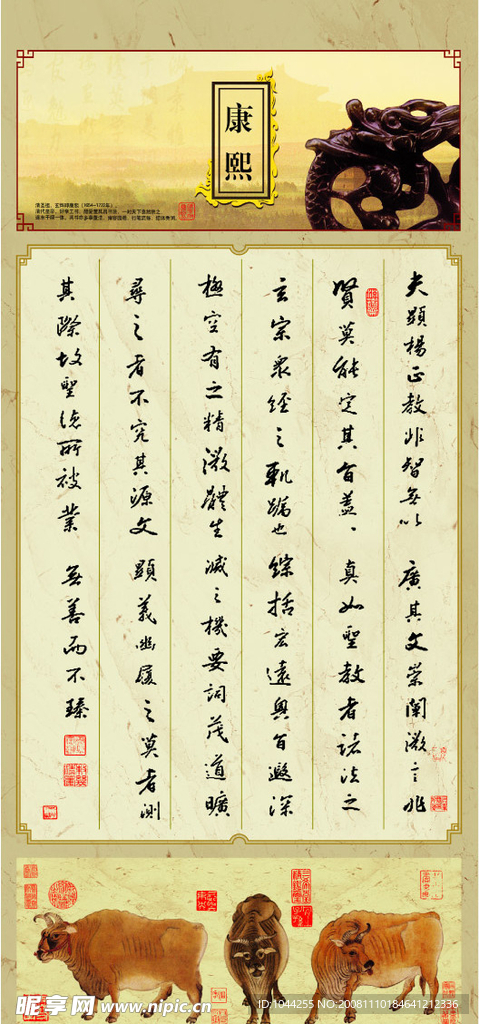 康
熙
夫顯楊正教非智無以廣其文崇闡微言非
賢莫能定其旨蓋、真如聖教者諸法之
玄宗眾經之軌躅也綜括宏遠奧旨遐深
極空有之精微體生滅之機要詞茂道曠
尋之者不究其源文顯義幽履之莫者測
其際故聖德所被業無善而不臻
昵享网 www.nipic.cn
ID:1044255 NO:20081110184641212336